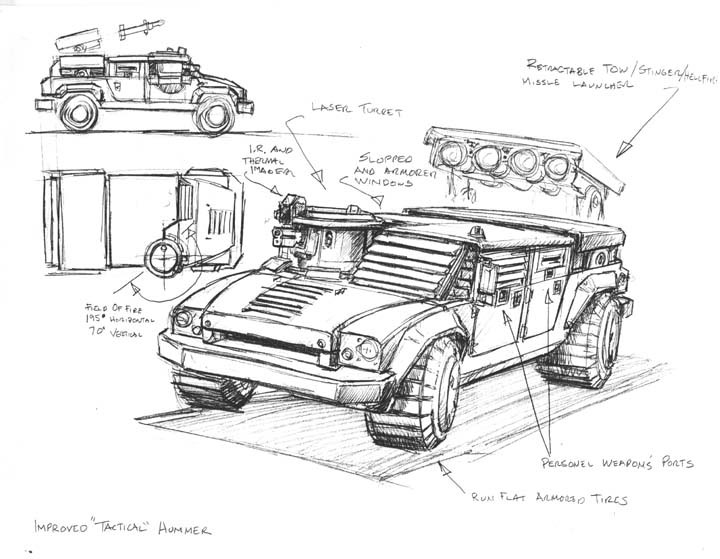 RETRACTABLE TOW/STINGER/HELLFIR
MISSLE LAUNCHER
LASER TURRET
I.R. AND
THERMAL
IMAGER
SLOPPED
AND ARMORED
WINDOWS
FIELD OF FIRE
195° HORIZONTAL
70° VERTICAL
PERSONEL WEAPON'S PORTS
RUN FLAT ARMORED TIRES
IMPROVED "TACTICAL" HUMMER